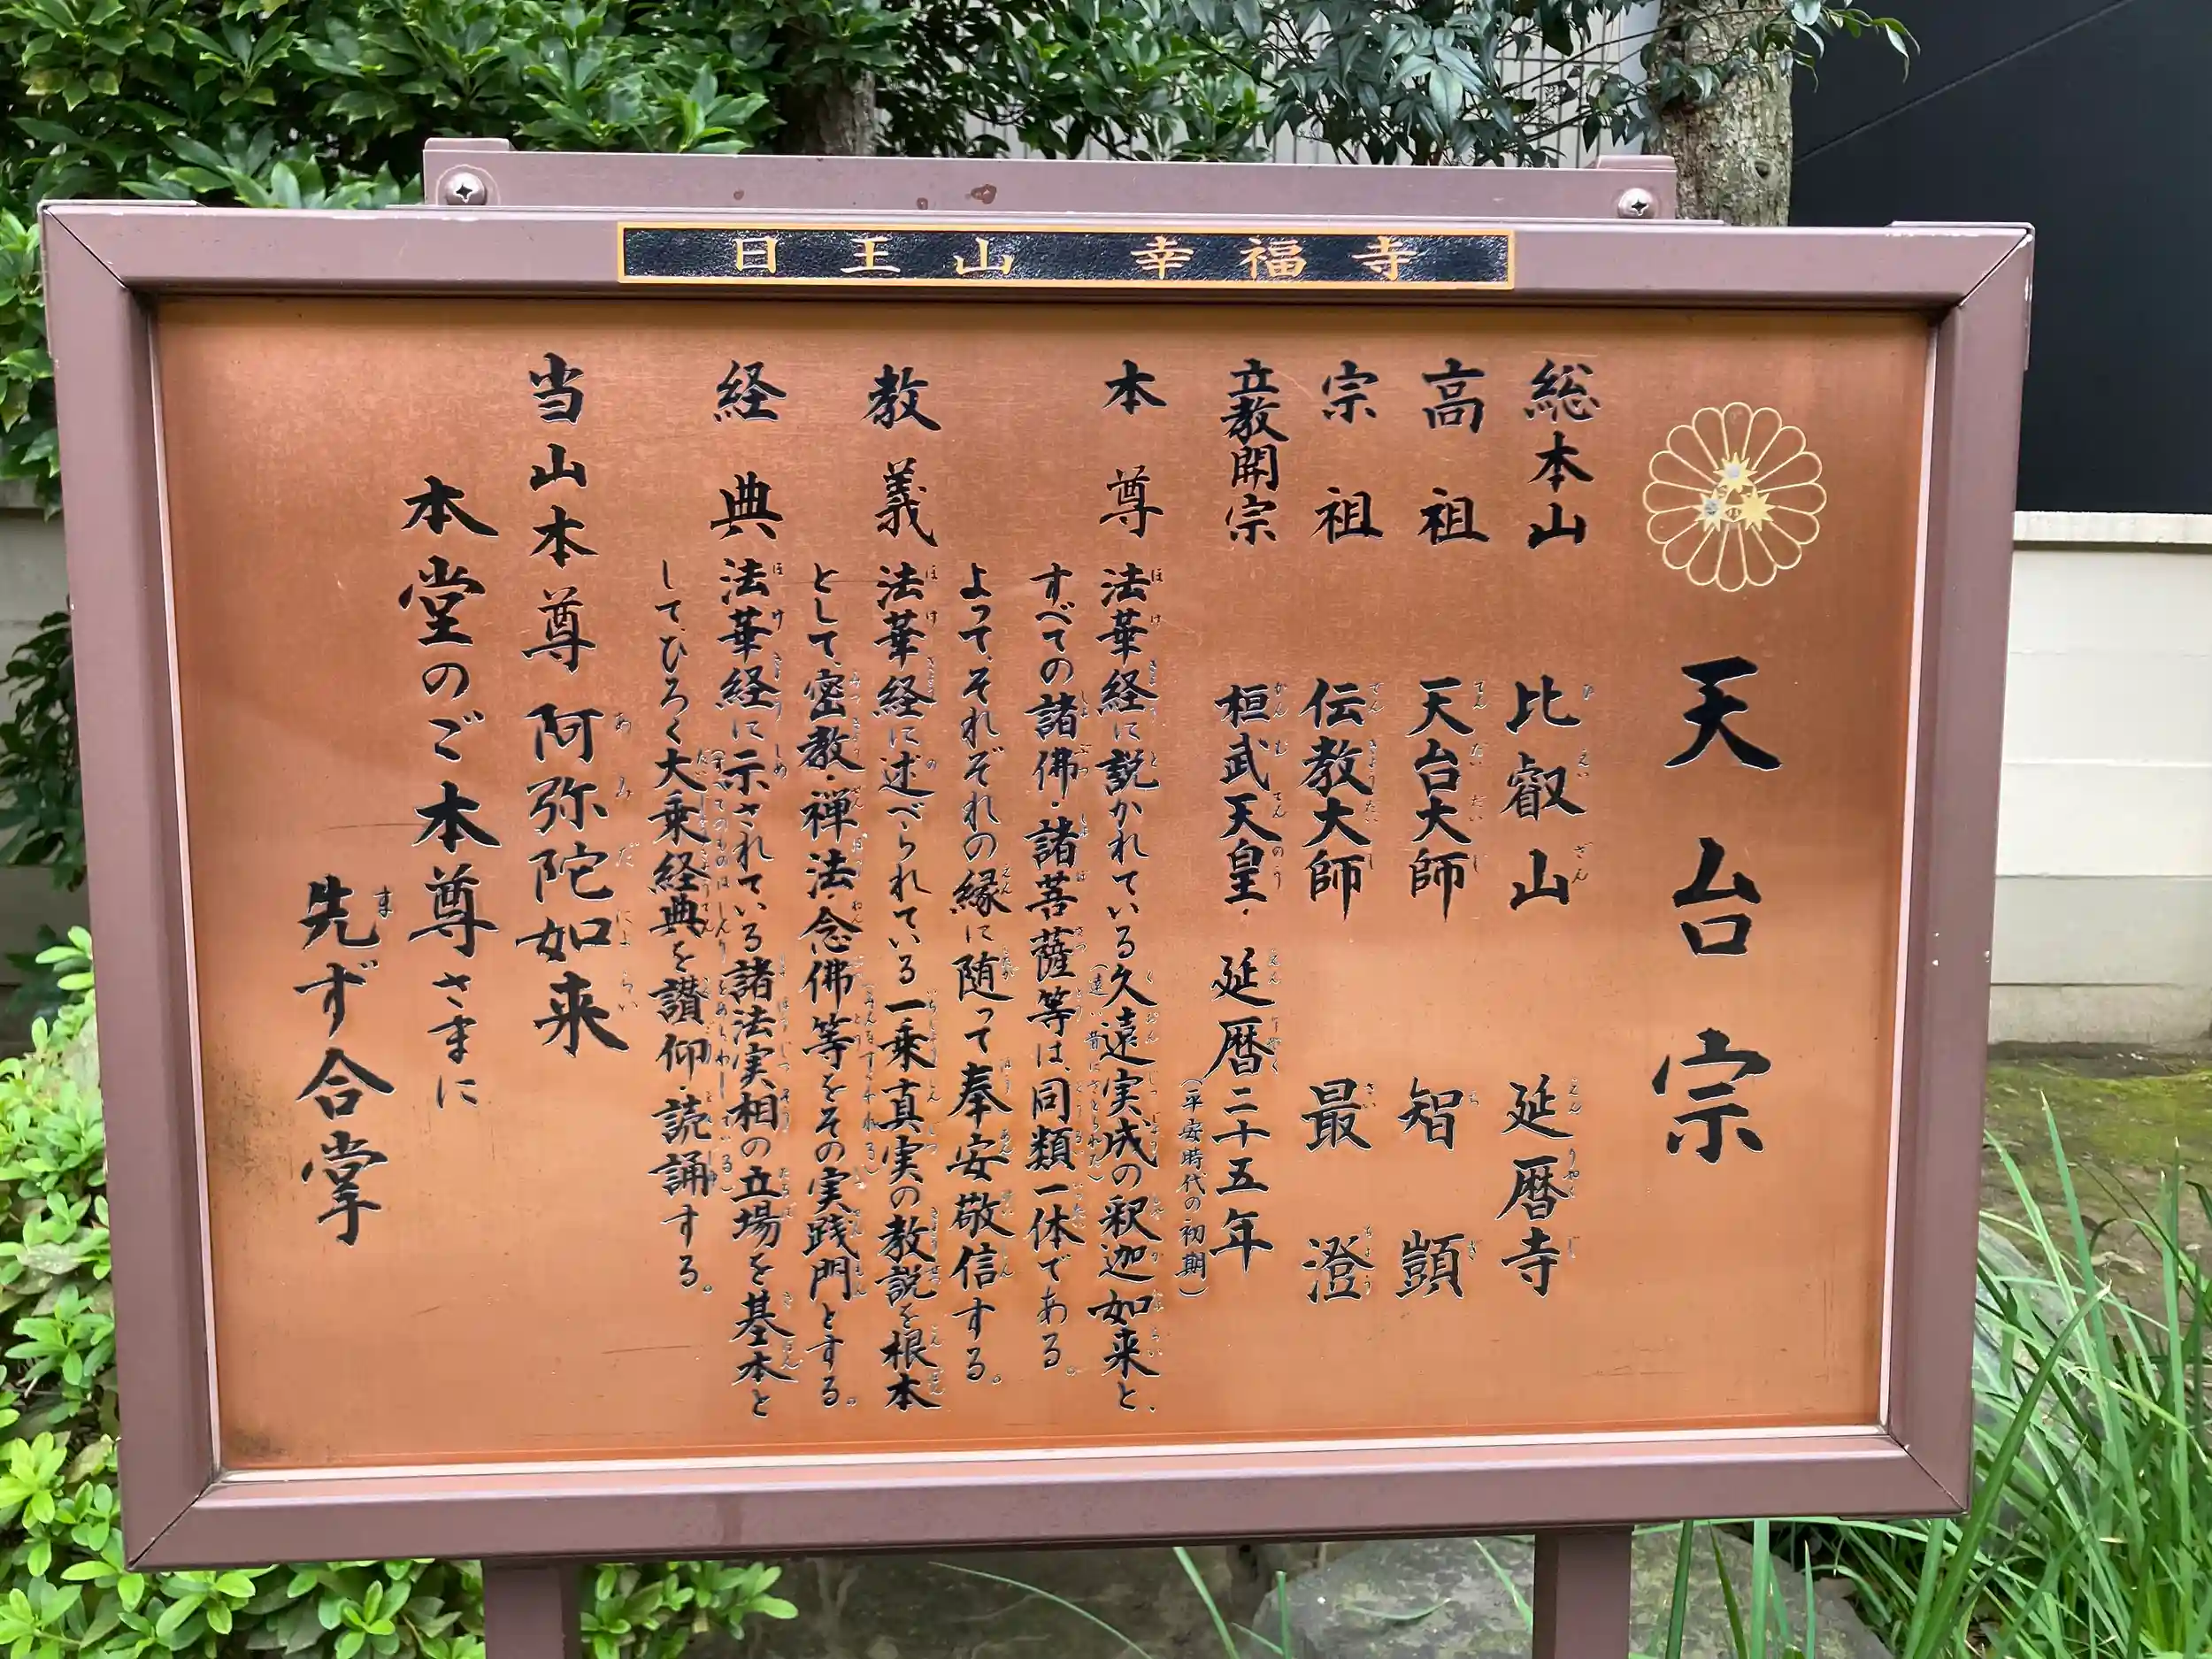 日王山 幸福寺
天台宗
総本山 比叡山 延暦寺
高祖 天台大師 智顗
宗祖 伝教大師 最澄
立教開宗 桓武天皇・延暦二十五年
(平安時代の初期)
本尊 法華経に説かれている久遠実成の釈迦如来と、
(遠い昔にさとられた)
すべての諸佛・諸菩薩等は、同類一体である。
よって、それぞれの縁に随って奉安敬信する。
教義 法華経に述べられている一乗真実の教説を根本
として、密教・禅法・念佛等をその実践門とする。
経典 法華経に示されている諸法実相の立場を基本と
して、ひろく大乗経典を讃仰・読誦する。
当山本尊 阿弥陀如来
本堂のご本尊さまに
先ず合掌